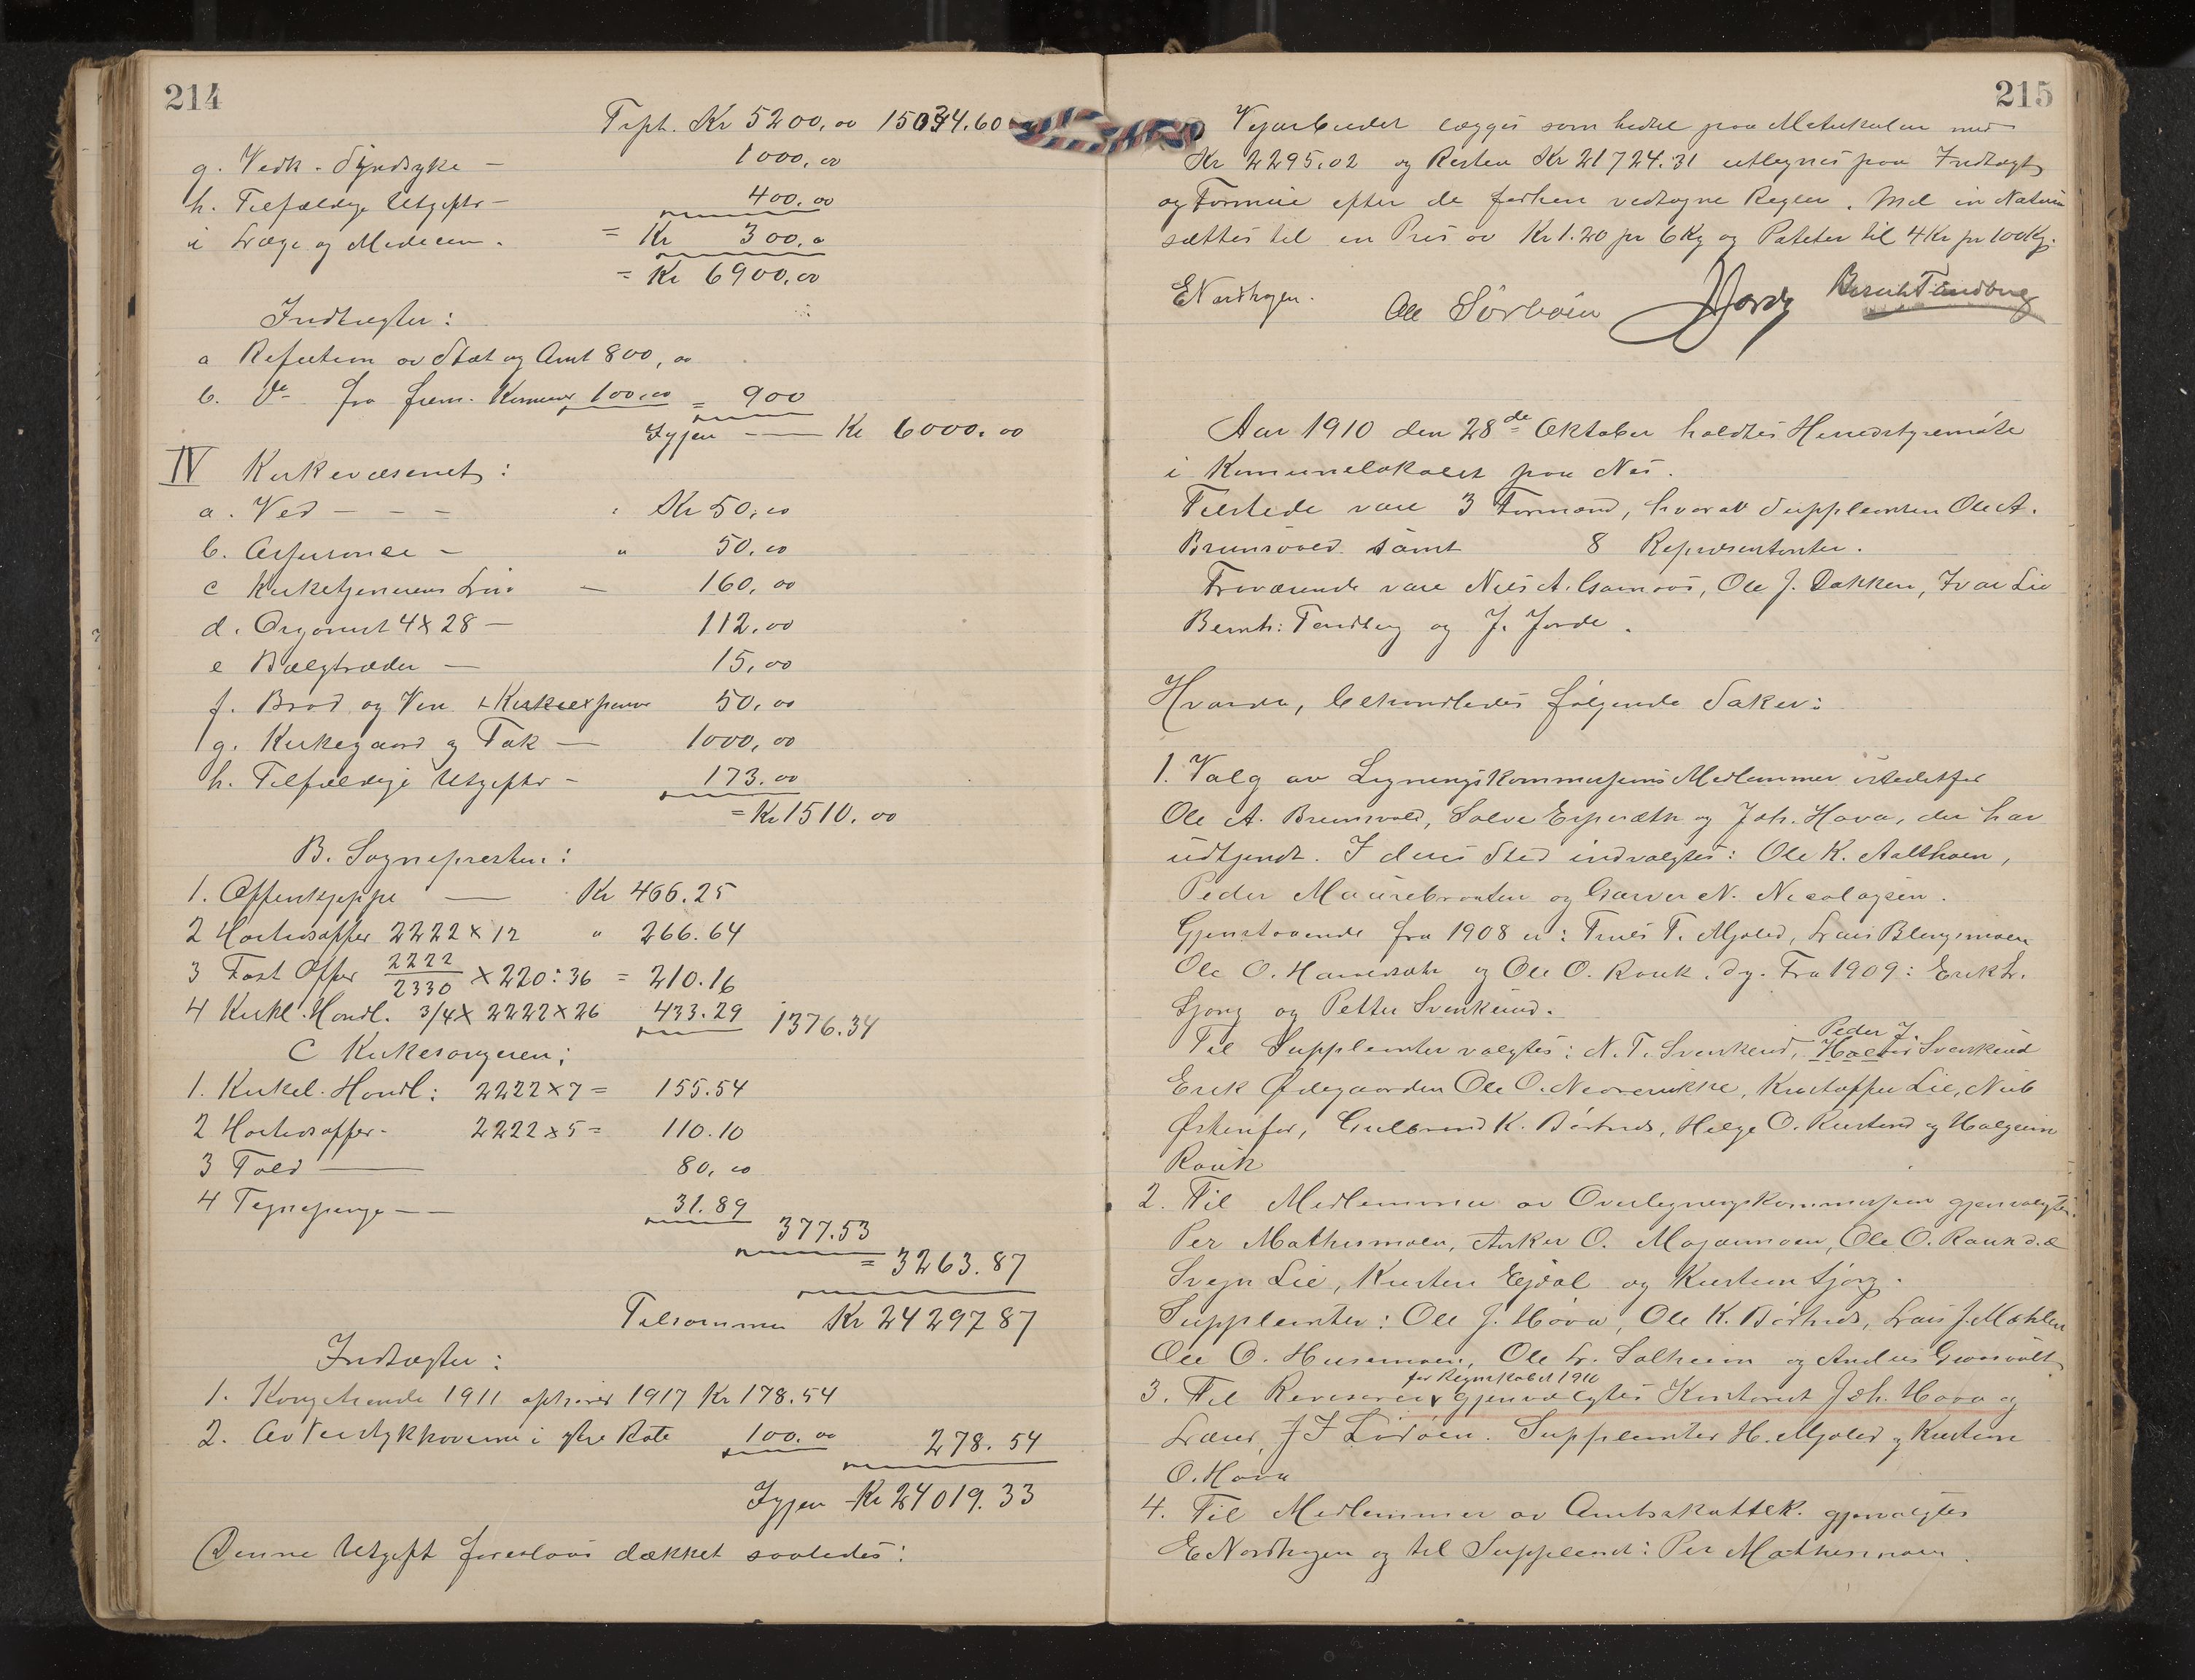 214
Trpt. Kr 5200,00 15034.60
g. Vedk. Sindsyke — 1000,00
h. Tilfældige Utgifter — 400,00
i Læge og Medicin. = Kr 300,00
= Kr 6900,00
Indtægter:
a Refution av Stat og Amt 800,00
b. Do fra frem. Komuner 100,00 = 900
Igjen — Kr 6000.00
IV Kirkevæsenet:
a. Ved - - - Kr 50,00
b. Assurance - " 50,00
c Kirketjenerens Løn — 160,00
d. Organist 4 x 28 — 112.00
e Bælgtræder — 15,00
f. Brød og Vin + Kirkeexpenser 50,00
g. Kirkegaard og Tak — 1000,00
h. Tilfældige Utgifter - 173.00
= Kr 1510.00
B. Sognepresten:
1. Offentlig — Kr 466.25
2 Høitidsoffer 2222 x 12 " 266.64
3 Fast Offer 2222/2330 x 220:36 = 210.16
4 Kirkl. Handl. 3/4 x 2222 x 26 433.29 1376.34
C Kirkesangeren:
1. Kirkel. Handl: 2222 x 7 = 155.54
2 Høitidsoffer - 2222 x 5 = 110.10
3 Told — 80,00
4 Tegnepenge — 31.89
377.53
= 3263.87
Tilsammen Kr 24297 87
Indtægter:
1. Kongetiende 1911 ophører 1917 Kr 178.54
2. Av i øvre Rote 100.00 278.54
Igjen Kr 24019.33
Denne Utgift foreslaas dækket saaledes:
215
Veiarbeidet lægges som hidtil paa Matrikulen med
Kr 2295.02 og Resten Kr 21724.31 utlignes paa Indtægt
og Formue efter de forhen vedtagne Regler. Mel in Natura
sættes til en Pris av Kr 1.20 pr 6 Kg og Poteter til 4 Kr pr 100 Kg.
E Nordhagen. Ole Sørbøen J Jorde Bernh Tandberg
Aar 1910 den 28de Oktober holdtes Herredstyremøte
i Komunelokalet paa Nes.
Tilstede vare 3 Formænd, hvorav Suplenten Ole A.
Brunsvold samt 8 Repræsentanter.
Fraværende vare Nils A. Gamaas, Ole J. Dokken, Ivar Lie
Bernh: Tandberg og J. Jorde.
Hvorda, behandledes følgende Saker:
1. Valg av Ligningskommissions Medlemmer istedetfor
Ole A. Brunsvold, Solve Espesæth og Joh. Hova, der har
udtjent. I deres Sted indvalgtes: Ole K. Aalthoen,
Peder Maurebraaten og Garver N. Nicolaysen.
Gjenstaaende fra 1908 er: Truls T. Mjøled, Lars Blengsmoen
Ole O. Haversæth og Ole O. Rauk. d.y. Fra 1909: Erik L.
Sjong og Petter Svenkerud.
Til Supplenter valgtes: N. T. Svenkerud, Peder J. Svenkerud
Erik Ødegaarden Ole O. Nedrerukke, Kristoffer Lie, Nils
Østenfor, Gulbrand K. Børtnes, Helge O. Rustand og Halgrim
Rauk
2. Til Medlemmer av Overligningskommissionen gjenvalgtes
Per Mathismoen, Asker O. Magaunoen, Ole O. Rauk d.æ
Svein Lie, Kristen Eidal og Kristian Sjong.
Supplenter: Ole J. Hova, Ole K. Børtnes, Lars J. Mæhlen
Ole O. Husemoen, Ole L. Solheim og Andres Granvolt
3. Til Revisorer for Regnskabet 1910 gjenvalgtes Kontorist Joh. Hova og
Lærer J J Lidøen. Supplenter H. Mjøled og Kristian
O. Hova
4. Til Medlemmer av Amtsskattek. gjenvalgtes
E Nordhagen og til Supplent: Per Mathismoen.